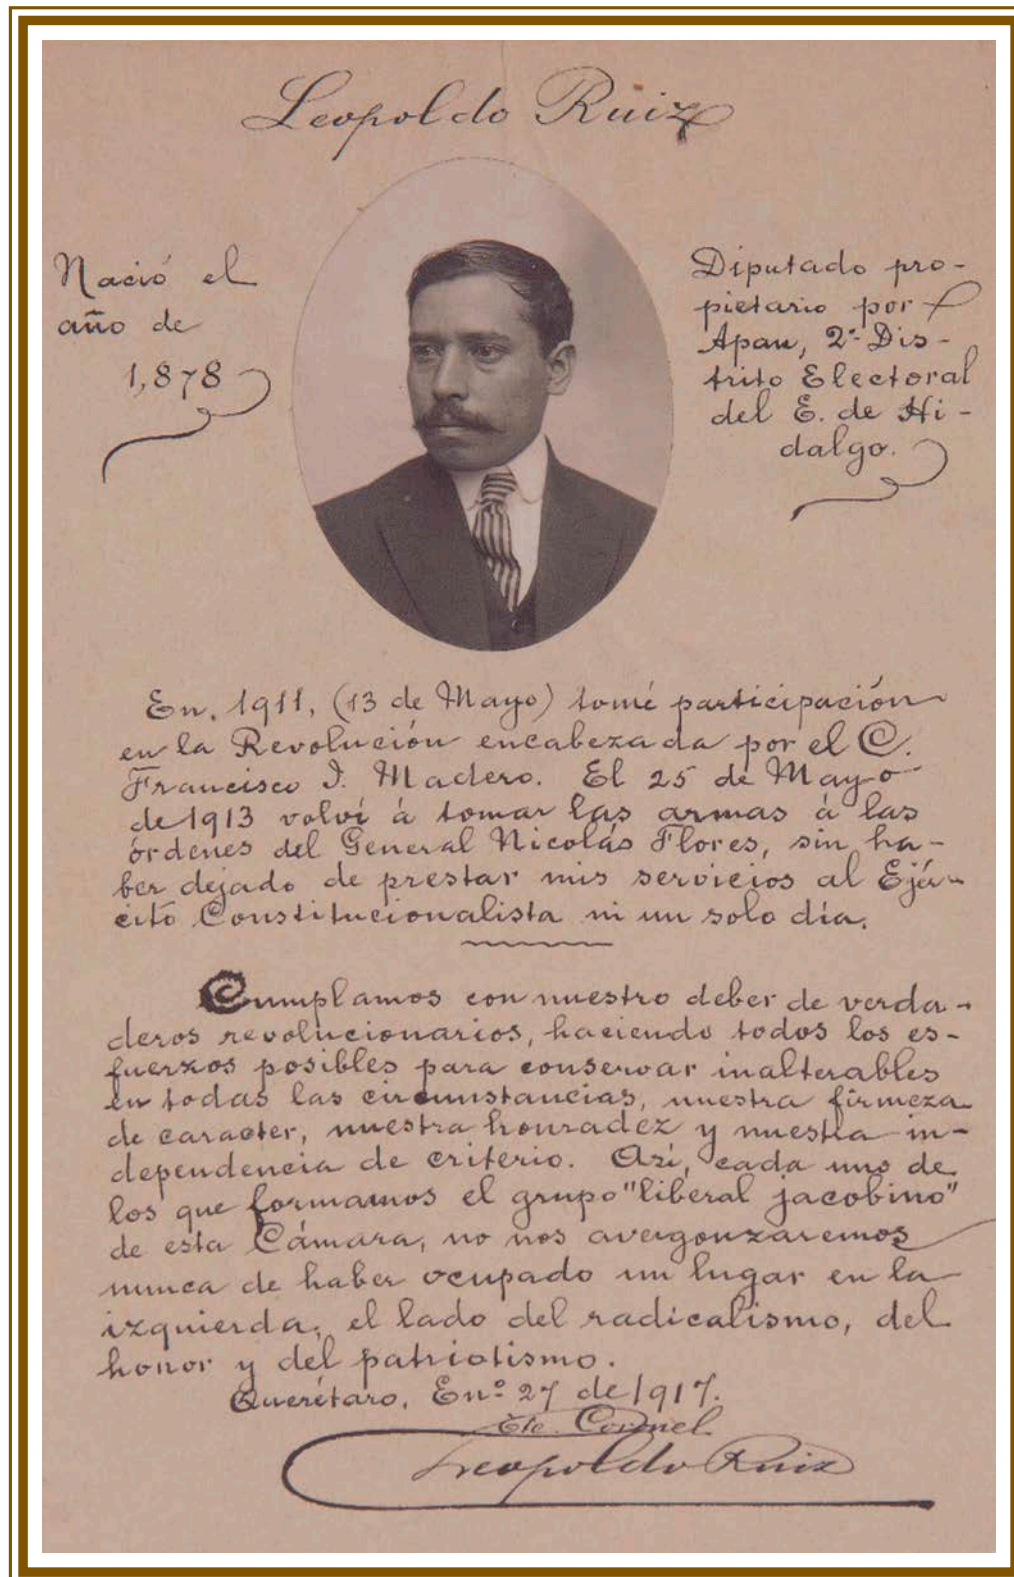 Leopoldo Ruiz
Nació el
año de
1,878
Diputado pro-
pietario por
Apan, 2º Dis-
trito Electoral
del E. de Hi-
dalgo.
En. 1911, (13 de Mayo) tomé participación
en la Revolución encabezada por el C.
Francisco I. Madero. El 25 de Mayo
de 1913 volví à tomar las armas à las
órdenes del General Nicolás Flores, sin ha-
ber dejado de prestar mis servicios al Ejér-
cito Constitucionalista ni un solo día.
Cumplamos con nuestro deber de verda-
deros revolucionarios, haciendo todos los es-
fuerzos posibles para conservar inalterables
en todas las circunstancias, nuestra firmeza
de caracter, nuestra honradez y nuestra in-
dependencia de criterio. Asi, cada uno de
los que formamos el grupo "liberal jacobino"
de esta Cámara, no nos avergonzaremos
nunca de haber ocupado un lugar en la
izquierda, el lado del radicalismo, del
honor y del patriotismo.
Querétaro, Enº 27 de 1917.
Tte. Coronel
Leopoldo Ruiz